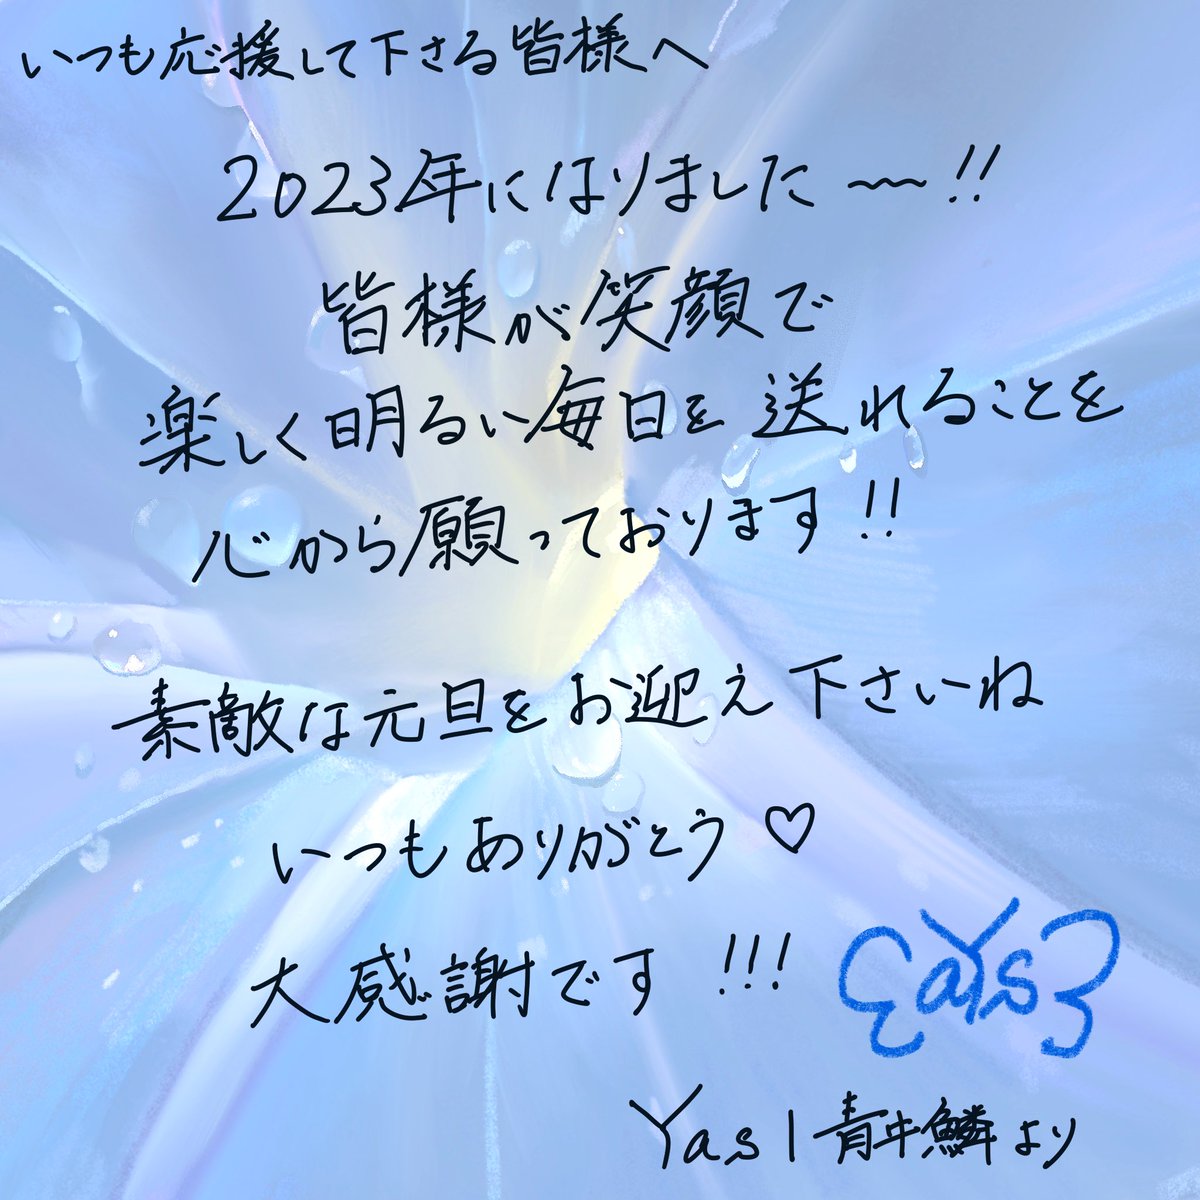 いつも応援して下さる皆様へ
2023年になりました〜!!
皆様が笑顔で
楽しく明るい毎日を送れることを
心から願っております!!
素敵な元旦をお迎え下さいね
いつもありがとう♡
大感謝です!!!
aYs
Yas|青牛鱗より